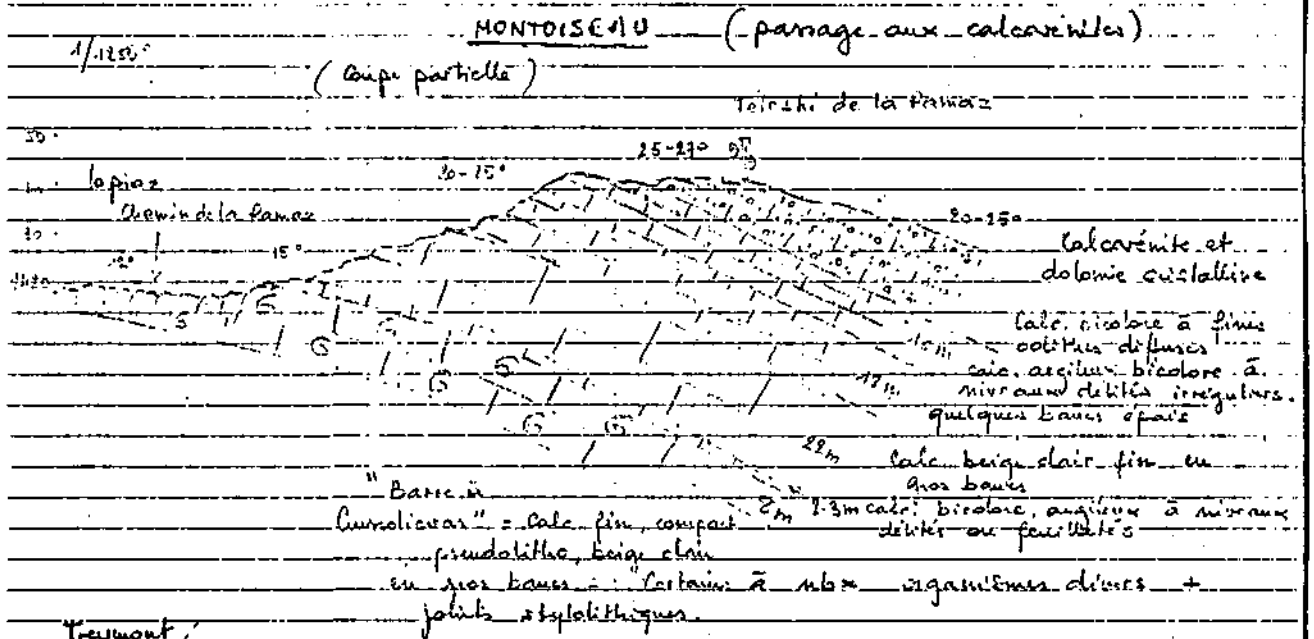 MONTOISEAU (passage aux calcarénites)
1/1250
(Coupe partielle)
de la Ramaz
25-27°
20-25°
lapiaz
Chemin de la Ramaz
20-25°
15°
Calcarénite et
dolomie cristalline
Calc. bicolore à fines
oolithes diffuses
calc. argileux bicolore à
niveaux délités irréguliers.
quelques bancs épais
22m
Calc beige clair fin en
gros bancs
"Barre à
= Calc fin, compact
2m
2-3m calc. bicolore, argileux à niveaux
délités ou feuilletés
pseudolitho, beige clair
en gros bancs Certains à nbx organismes divers +
joints stylolithiques.
Treymont